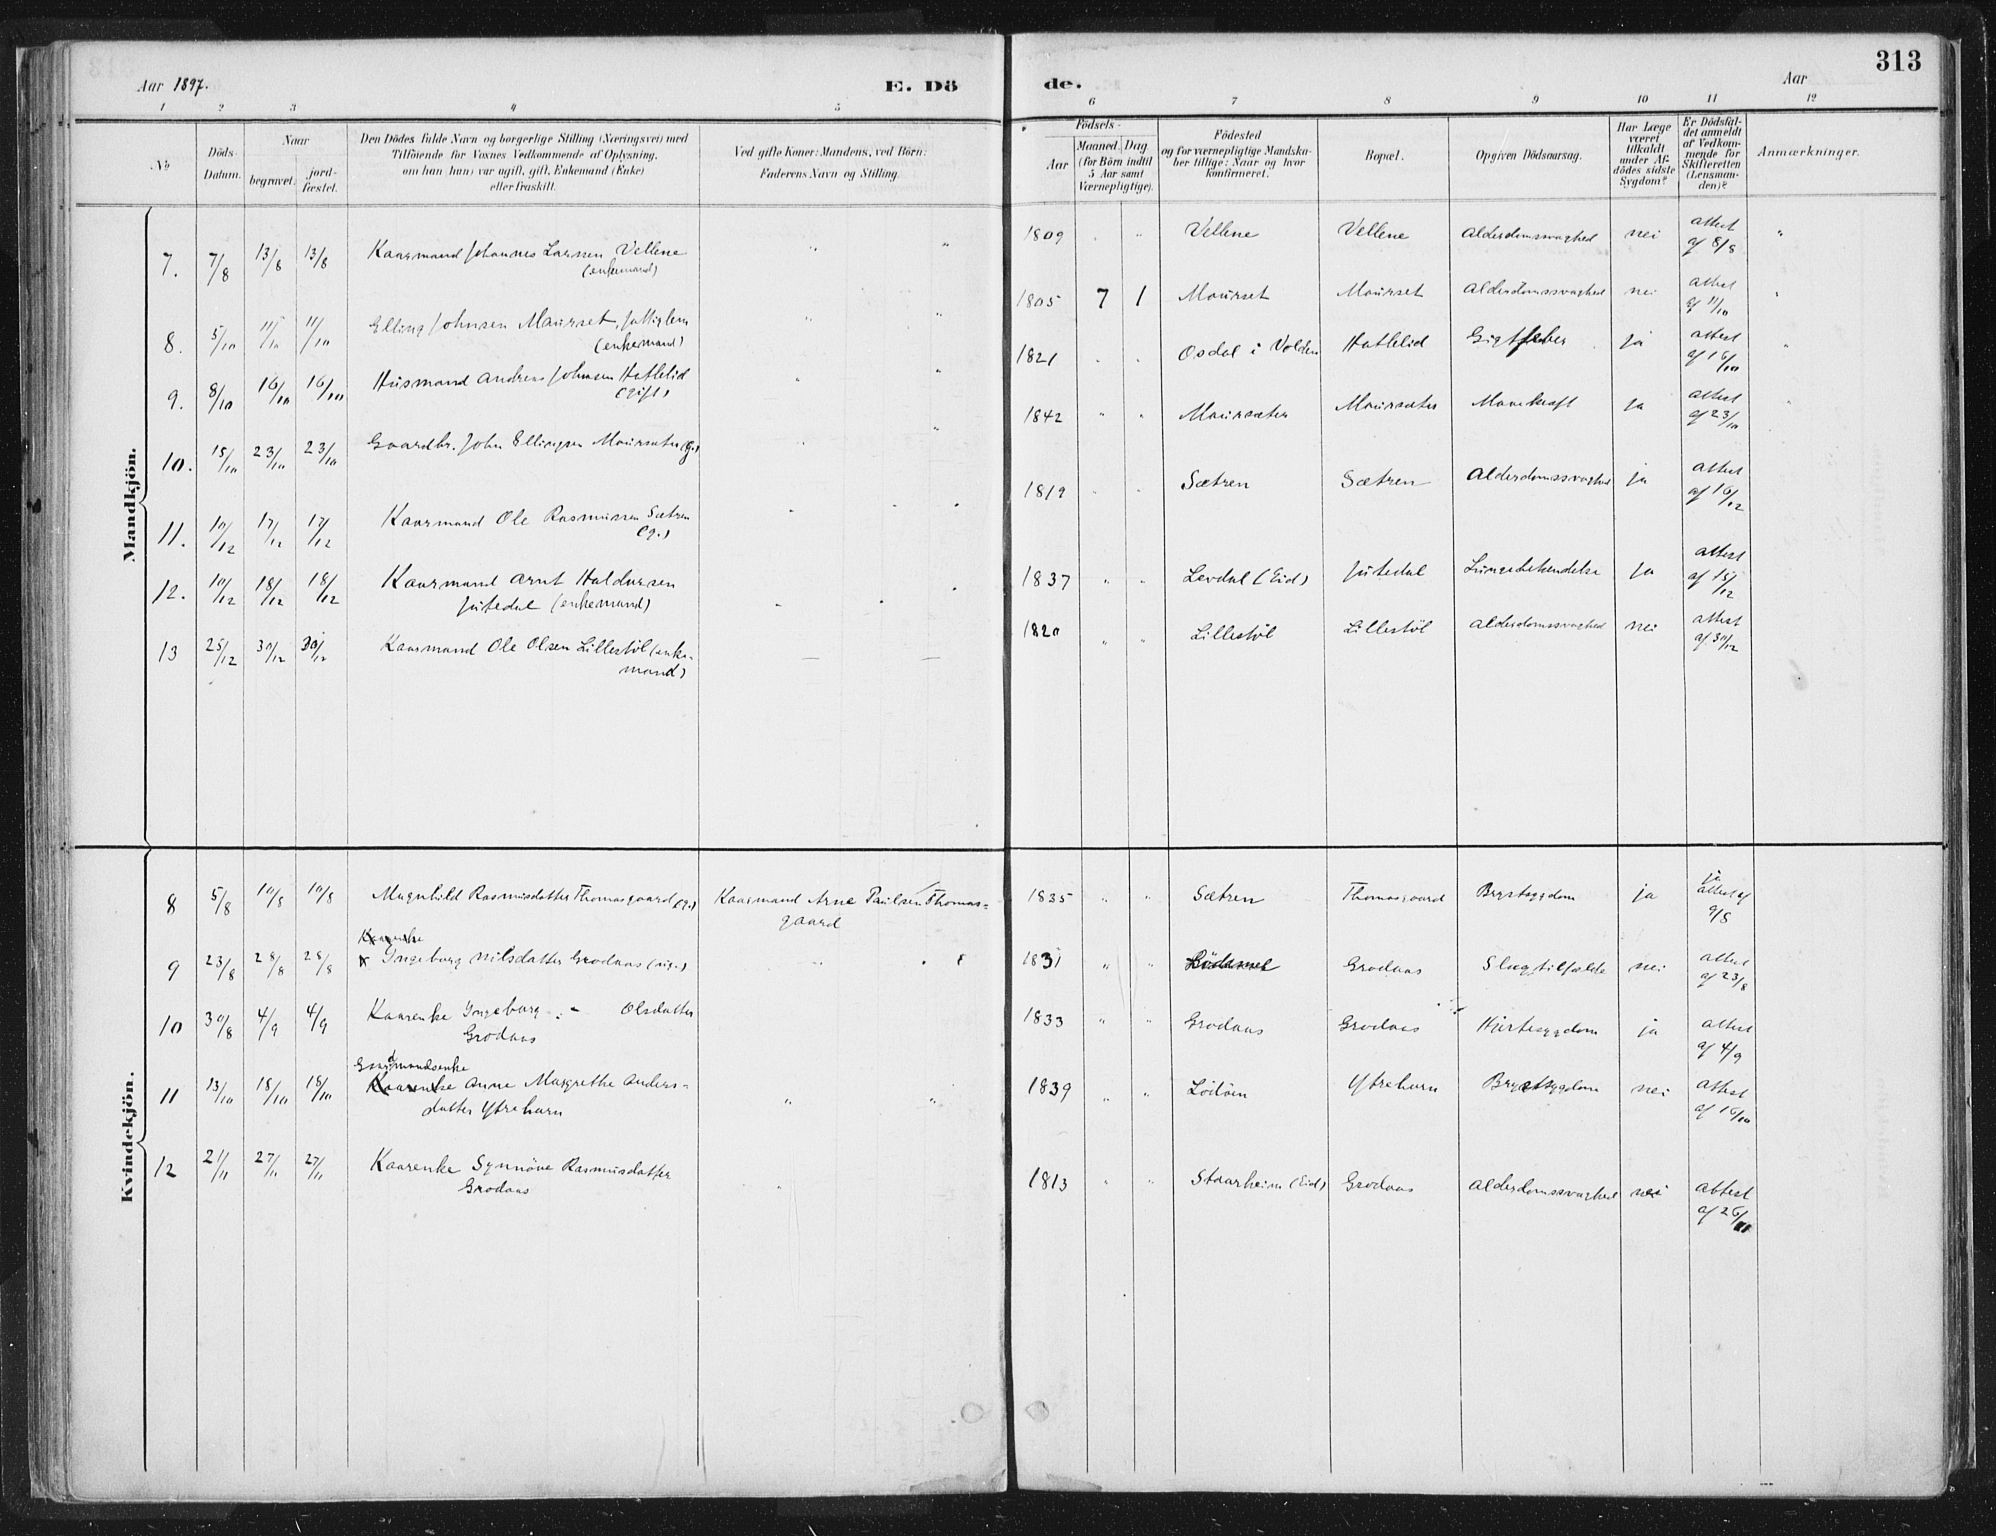 313
Aar 1897.
E. Dö
de.
Aar
1 2 3 4 5 6 7 8 9 10 11 12
No
Döds-Datum.
Naar
begravet.
jord-fæstet.
Den Dödes fulde Navn og borgerlige Stilling (Næringsvei) med
Tilföiende for Voxnes Vedkommende af Oplysning,
om han (hun) var ugift, gift, Enkemand (Enke)
eller fraskilt.
Ved gifte Koner: Mandens, ved Börn:
Faderens Navn og Stilling.
Födsels-
Aar
Maaned. Dag
(for Börn indtil
5 Aar samt
Værnepligtige).
Födested
og for værnepligtige Mandska-
ber tillige: Naar og hvor
konfirmeret.
Bopæl.
Opgiven Dödsaarsag.
Har Læge
været
tilkaldt
under Af-
dödes sidste
Sygdom?
Er Dödsfal-
det anmeldt
af Vedkom-
mende for
Skifteretten
(Lensman-
den)?
Anmærkninger.
Mandkjön.
7. 7/8 13/8 13/8 Kaarmand Johannes Larssen Vellene (enkemand) " " 1809 " " Vellene Vellene Alderdomssvaghed nei attest af 8/8 "
8. 5/10 11/10 11/10 Elling Johnsen Maurset, fattiglem (enkemand) " " 1805 7 1 Maurset Maurset Alderdomssvaghed nei attest af 11/10 "
9. 8/10 16/10 16/10 Husmand Andreas Johnsen Hatlelid (gift) " " 1821 " " Osdal i Volden Hatlelid Gigtfeber ja attest af 16/10 "
10. 15/10 23/10 23/10 Gaardbr. John Ellingsen Maursæter (g.) " " 1842 " " Maursæter Maursæter Mavekræft ja attest af 23/10 "
11. 10/12 17/12 17/12 Kaarmand Ole Rasmussen Sætren (g.) " " 1819 " " Sætren Sætren Alderdomssvaghed ja attest af 16/12
12. 10/12 18/12 18/12 Kaarmand Arnt Haldorsen Jutedal (enkemand) " " 1837 " " Levdal (Eid) Jutedal Lungebetendelse ja attest af 18/12
13 25/12 30/12 30/12 Kaarmand Ole Olsen Lillestöl (enke-mand) — — 1820 " " Lillestöl Lillestöl Alderdomssvaghed nei attest af 30/12
Kvindekjön.
8 5/8 10/8 10/8 Magnhild Rasmusdatter Thomasgaard (g.) Kaarmand Arne Paulsen Thomas-gaard 1835 " " Sætren Thomasgaard Brystsygdom ja ja attest af 9/8
9 23/8 28/8 28/8 Kaarenke Ingeborg Nilsdatter Grodaas (ug.) " " 1831 " " Grodaas Slagtilfælde nei attest af 23/8
10 30/8 4/9 4/9 Kaarenke Ingeborg Olsdatter Grodaas 1833 " " Grodaas Grodaas Hjertesygdom ja attest af 4/9
11 13/10 18/10 18/10 Gaardmandsenke Kaarenke Anne Margrethe Anders-datter Ytrehorn " " 1839 " " Lödöen Ytrehorn Brystsygdom nei attest af 16/10
12 21/11 27/11 27/11 Kaarenke Synnöve Rasmusdatter Grodaas " 1813 " " Staarheim (Eid) Grodaas Alderdomssvaghed nei attest af 26/11